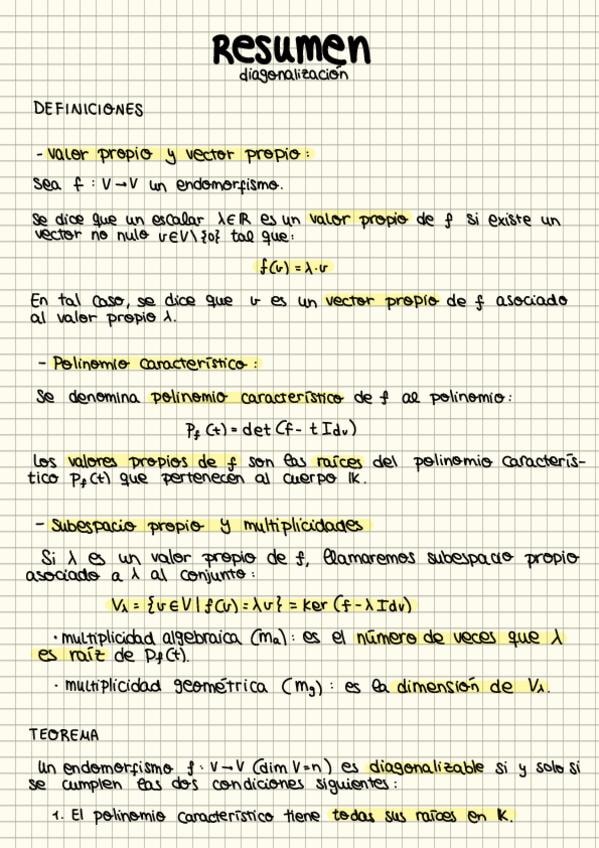 Resumen
diagonalización
DEFINICIONES
- Valor propio y vector propio:
Sea f : V→V un endomorfismo.
Se dice que un escalar λ∈ℝ es un valor propio de f si existe un
vector no nulo v∈V\{0} tal que:
f(v) = λ·v
En tal caso, se dice que v es un vector propio de f asociado
al valor propio λ.
- Polinomio característico:
Se denomina polinomio característico de f al polinomio:
P_f (t) = det (f - t Id_V)
Los valores propios de f son las raíces del polinomio caracterís-
tico P_f(t) que pertenecen al cuerpo 𝕂.
- Subespacio propio y multiplicidades
Si λ es un valor propio de f, llamaremos subespacio propio
asociado a λ al conjunto:
V_λ = {v∈V | f(v) = λv} = ker (f - λ Id_V)
· multiplicidad algebraica (m_a): es el número de veces que λ
es raíz de P_f(t).
· multiplicidad geométrica (m_g): es la dimensión de V_λ.
TEOREMA
Un endomorfismo f : V→V (dim V=n) es diagonalizable si y solo si
se cumplen las dos condiciones siguientes:
1. El polinomio característico tiene todas sus raíces en K.